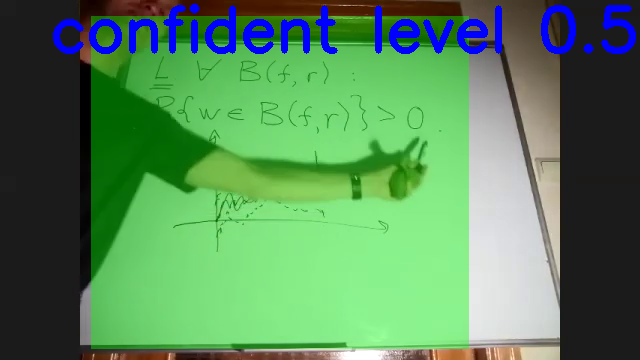 confident level 0.5
L ∀ B(f,r) :
P{w ∈ B(f,r)} > 0.